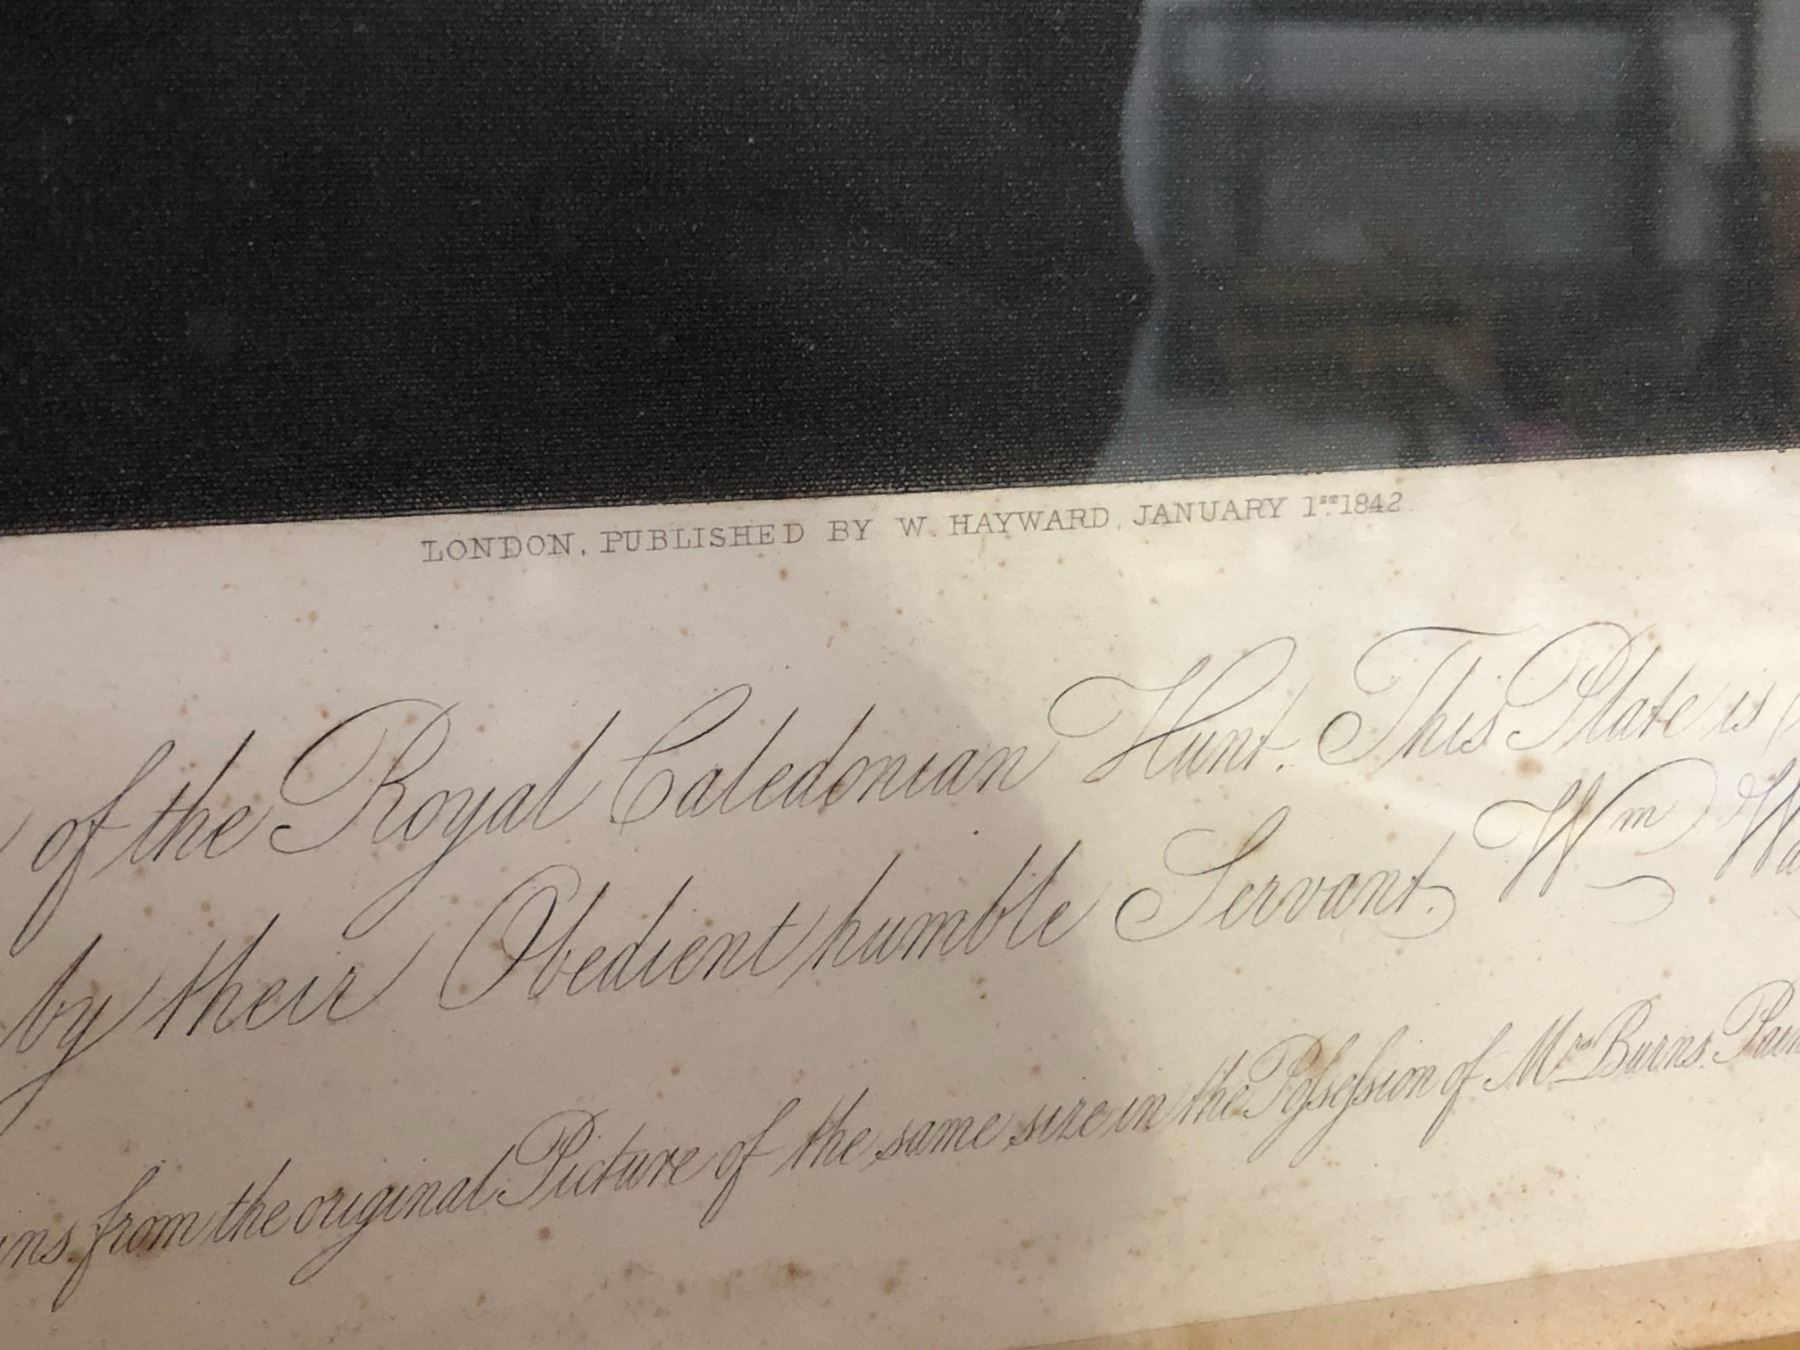 LONDON, PUBLISHED BY W. HAYWARD, JANUARY 1ST 1842.
of the Royal Caledonian Hunt. This Plate is
by their Obedient humble Servant. Wm
from the original Picture of the same size in the Poſseſsion of Mrs Burns.